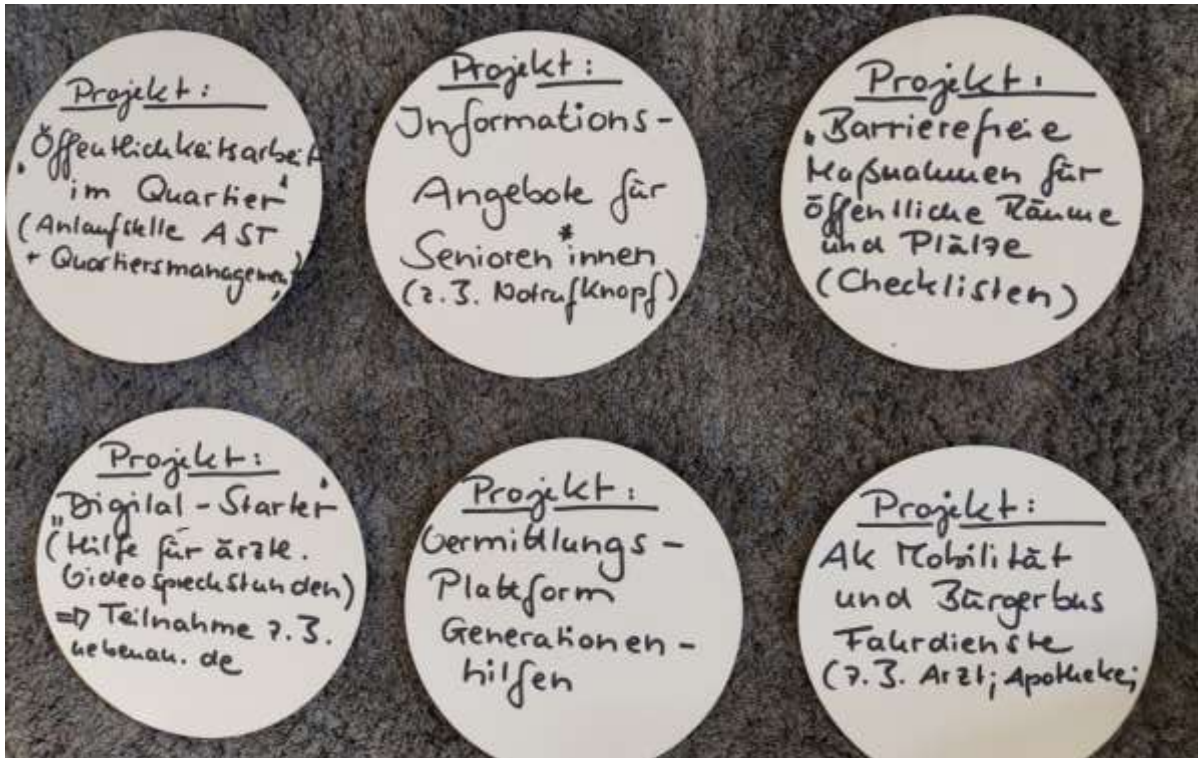 Projekt:
"Öffentlichkeitsarbeit
im Quartier"
(Anlaufstelle AST
+ Quartiersmanagement)
Projekt:
Informations-
Angebote für
Senioren*innen
(z.B. Notrufknopf)
Projekt:
"Barrierefreie
Maßnahmen für
öffentliche Räume
und Plätze
(Checklisten)
Projekt:
"Digital-Starter"
(Hilfe für ärztl.
Videosprechstunden)
=> Teilnahme z.B.
nebenan.de
Projekt:
Vermittlungs-
Plattform
Generationen-
hilfen
Projekt:
AK Mobilität
und Bürgerbus
Fahrdienste
(z.B. Arzt; Apotheke;